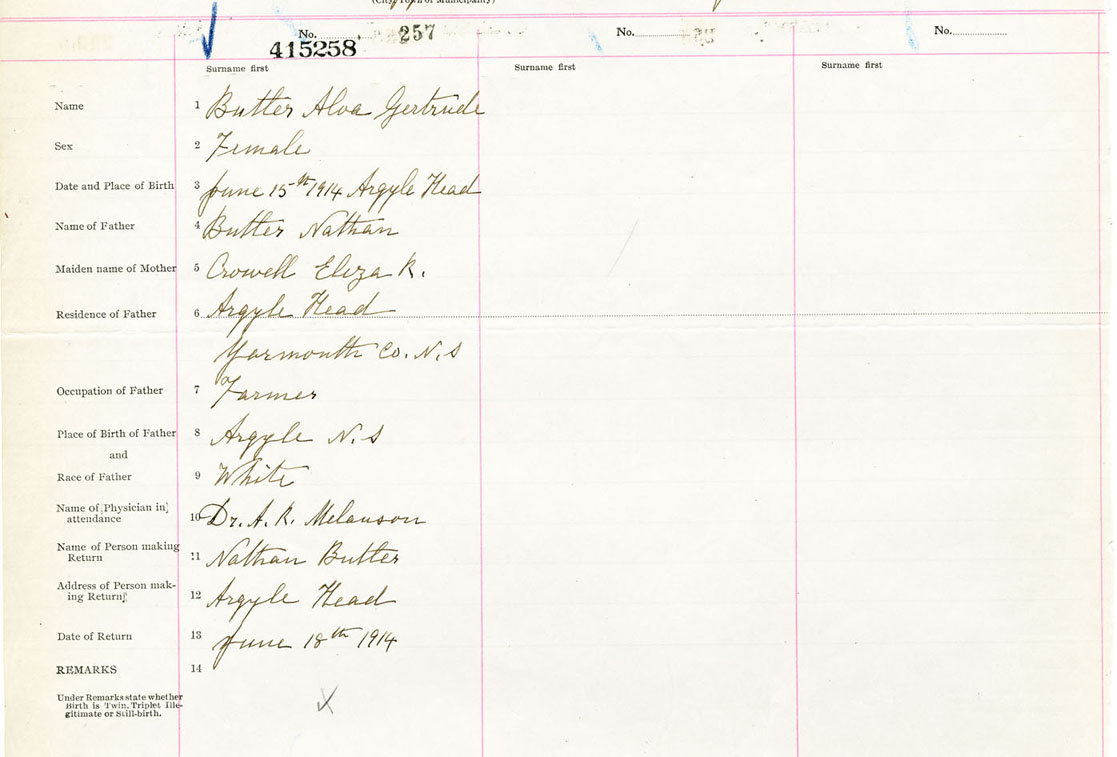 (City, Town or Municipality)
No. 257 No. No.
415258
Surname first Surname first Surname first
Name 1 Butler Alva Gertrude
Sex 2 Female
Date and Place of Birth 3 June 15th 1914 Argyle Head
Name of Father 4 Butler Nathan
Maiden name of Mother 5 Crowell Eliza K.
Residence of Father 6 Argyle Head
Yarmouth Co. N.S
Occupation of Father 7 Farmer
Place of Birth of Father 8 Argyle N.S
and
Race of Father 9 White
Name of Physician in
attendance 10 Dr. A. R. Melanson
Name of Person making
Return 11 Nathan Butler
Address of Person mak-
ing Return 12 Argyle Head
Date of Return 13 June 18th 1914
REMARKS 14
Under Remarks state whether
Birth is Twin, Triplet Ille-
gitimate or Still-birth.